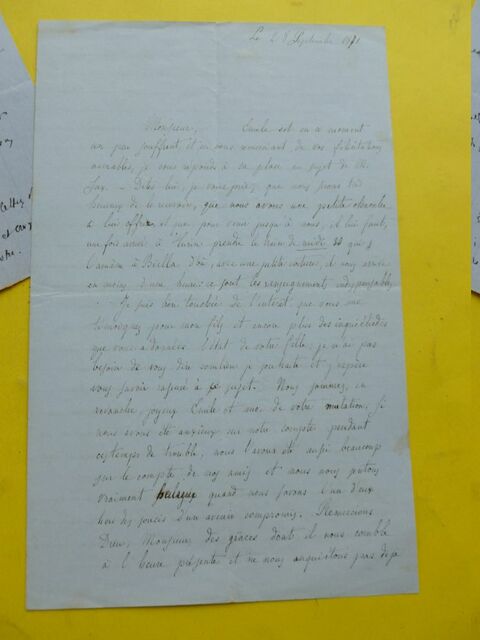 Le 28 Septembre 1871
Monsieur, Emile est en ce moment
un peu souffrant, et en vous remerciant de vos félicitations
aimables, je vous réponds à sa place au sujet de Mr
Dites lui, je vous prie, que nous serons très
heureux de le recevoir, que nous avons une petite chambre
à lui offrir et que pour venir jusqu'à nous, il lui faut,
une fois arrivé à Turin prendre le train de midi qui
l'amène à Biella d'où, avec une petite voiture, il nous arrive
en moins d'une heure: ce sont les renseignements indispensables.
Je suis bien touchée de l'intérêt que vous me
témoignez pour mon fils et encore plus des inquiétudes
que vous a données l'état de votre fille, je n'ai pas
besoin de vous dire combien je souhaite et j'espère
vous savoir rassuré à ce sujet. Nous sommes, en
revanche, joyeux Emile et moi de votre mutation. Si
nous avons été anxieux sur notre compte pendant
ces temps de trouble, nous l'avons été aussi beaucoup
sur le compte de nos amis et nous nous sentons
vraiment soulagés quand nous savons l'un d'eux
hors des soucis d'un avenir compromis. Remercions
Dieu, Monsieur des grâces dont il nous comble
à l'heure présente et ne nous inquiétons pas déjà